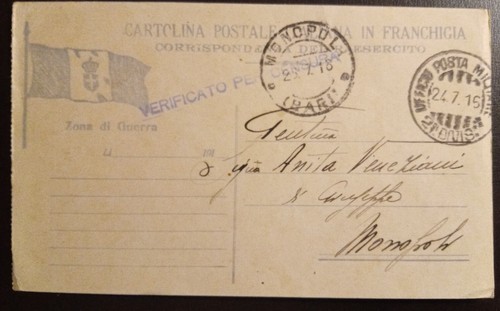 CARTOLINA POSTALE ITALIANA IN FRANCHIGIA
CORRISPONDENZA DELL'ESERCITO
VERIFICATO PER CENSURA
MONOPOLI
(BARI)
UFFICIO POSTA MILITARE
24.7.16
Zona di Guerra
Gentilma
Anita Veneziani
Giuseppe
Monopoli